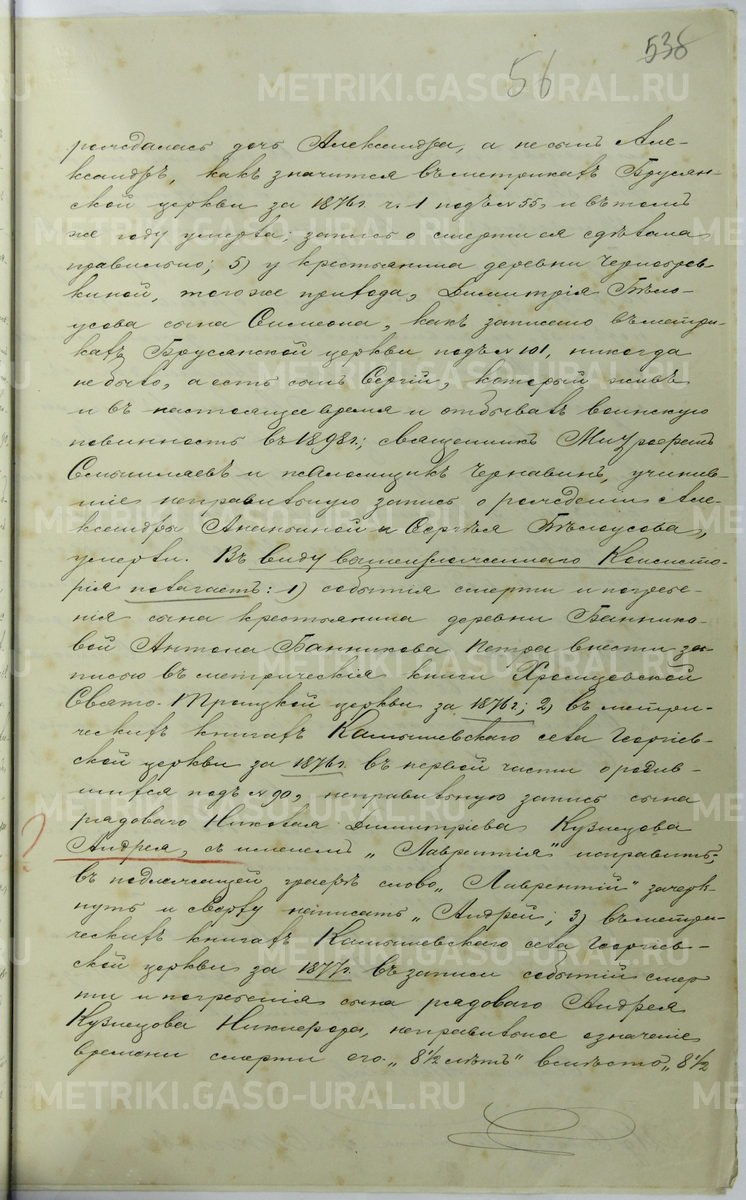 538
56
METRIKI.GASO-URAL.RU
рождалась дочь Александра, а не сынъ Але-
ксандръ, какъ значится въ метрикахъ Бруснян-
ской церкви за 1876 г. ч. 1 подъ № 55, и въ томъ
же году умерла; запись о смерти ея сдѣлана
правильно; 5) у крестьянина деревни Чернобров-
киной, того же прихода, Димитрія Бѣло-
усова сына Симеона, какъ записано въ метри-
кахъ Бруснянской церкви подъ № 101, никогда
не было, а есть сынъ Сергій, который живъ
и въ настоящее время и отбывалъ воинскую
повинность въ 1898 г.; священникъ Митрофанъ
Смышляевъ и псаломщикъ Чернавинъ, учинив-
шіе неправильную запись о рожденіи Але-
ксандры Ананьиной и Сергѣя Бѣлоусова,
умерли. Въ виду вышеизложеннаго Консисто-
рія полагаетъ: 1) событія смерти и погребе-
нія сына крестьянина деревни Баннико-
вой Антона Банникова Петра внести за-
писью въ метрическія книги Хромцовской
Свято-Троицкой церкви за 1876 г.; 2) въ метри-
ческихъ книгахъ Камышевскаго села Георгіев-
ской церкви за 1876 г. въ первой части о родив-
шихся подъ № 90, неправильную запись сына
рядоваго Николая Димитріева Кузнецова
Андрея, съ именемъ „Лаврентія" исправить;
въ подлежащей графѣ слово „Лаврентій" зачерк-
нуть и сверху написать „Андрей; 3) въ метри-
ческихъ книгахъ Камышевскаго села Георгіев-
ской церкви за 1877 г. въ записи событій смер-
ти и погребенія сына рядоваго Андрея
Кузнецова Никифора, неправильное означеніе
времени смерти его „8½ лѣтъ" вмѣсто „8½